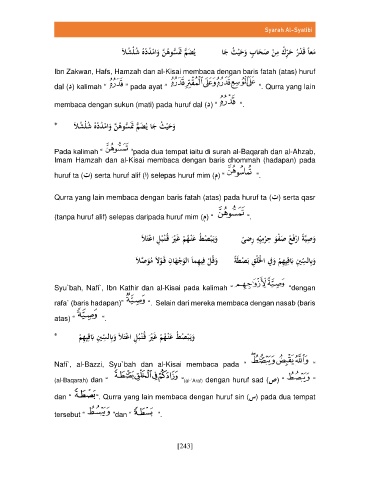 Syarah Al-Syatibi
مَعاً قَدْرُ حَرِّكْ مِنْ صَحَابٍ وَحَيْثُ جَا يُضَمُّ تَمَسُّوهُنَّ وَامْدُدْهُ شُلْشُلَا
Ibn Zakwan, Hafs, Hamzah dan al-Kisai membaca dengan baris fatah (atas) huruf
dal (د) kalimah " قَدَرُهُۥ " pada ayat " عَلَى ٱلْمُوسِعِ قَدَرُهُۥ وَعَلَى ٱلْمُقْتِرِ قَدَرُهُۥ ". Qurra yang lain
membaca dengan sukun (mati) pada huruf dal (د) " قَدْرُهُۥ ".
* وَحَيْثُ جَا يُضَمُّ تَمَسُّوهُنَّ وَامْدُدْهُ شُلْشُلَا
Pada kalimah " تَمَسُّوهُنَّ "pada dua tempat iaitu di surah al-Baqarah dan al-Ahzab,
Imam Hamzah dan al-Kisai membaca dengan baris dhommah (hadapan) pada
huruf ta (ت) serta huruf alif (ا) selepas huruf mim (م) " تُمَاسُّوهُنَّ ".
Qurra yang lain membaca dengan baris fatah (atas) pada huruf ta (ت) serta qasr
(tanpa huruf alif) selepas daripada huruf mim (م) " تَمَسُّوهُنَّ ".
وَصِيَّةٌ ارْفَعْ صَفْوُ حِرْمِيِّهِ رِضىً وَيَبْصُطُ عَنْهُمْ غَيْرَ قُنْبُلٍ اعْتَلَا
وَبِالسِّينِ بَاقِيهِمْ وَفِي الْخَلْقِ بَصْطَةً وَقُلْ فِيهِمَا الْوَجْهَانِ قَوْلَا مُوَصَّلَا
Syu`bah, Nafi`, Ibn Kathir dan al-Kisai pada kalimah " وَصِيَّةٌ لِّأَزْوَٰجِهِم "dengan
rafa` (baris hadapan)" وَصِيَّةٌ ". Selain dari mereka membaca dengan nasab (baris
atas) " وَصِيَّةً ".
* وَيَبْصُطُ عَنْهُمْ غَيْرَ قُنْبُلٍ اعْتَلَا وَبِالسِّينِ بَاقِيهِمْ
Nafi`, al-Bazzi, Syu`bah dan al-Kisai membaca pada " وَٱللَّهُ يَقْبِضُ وَيَبْصُۜطُ "
(al-Baqarah) dan " وَزَادَكُمْ فِى ٱلْخَلْقِ بَصْۜطَةً "(al-`Araf) dengan huruf sad (ص) " وَيَبْصُطُ "
dan " بَصْطَةً ". Qurra yang lain membaca dengan huruf sin (س) pada dua tempat
tersebut " وَيَبْسُطُ "dan " بَسْطَةً ".
[243]